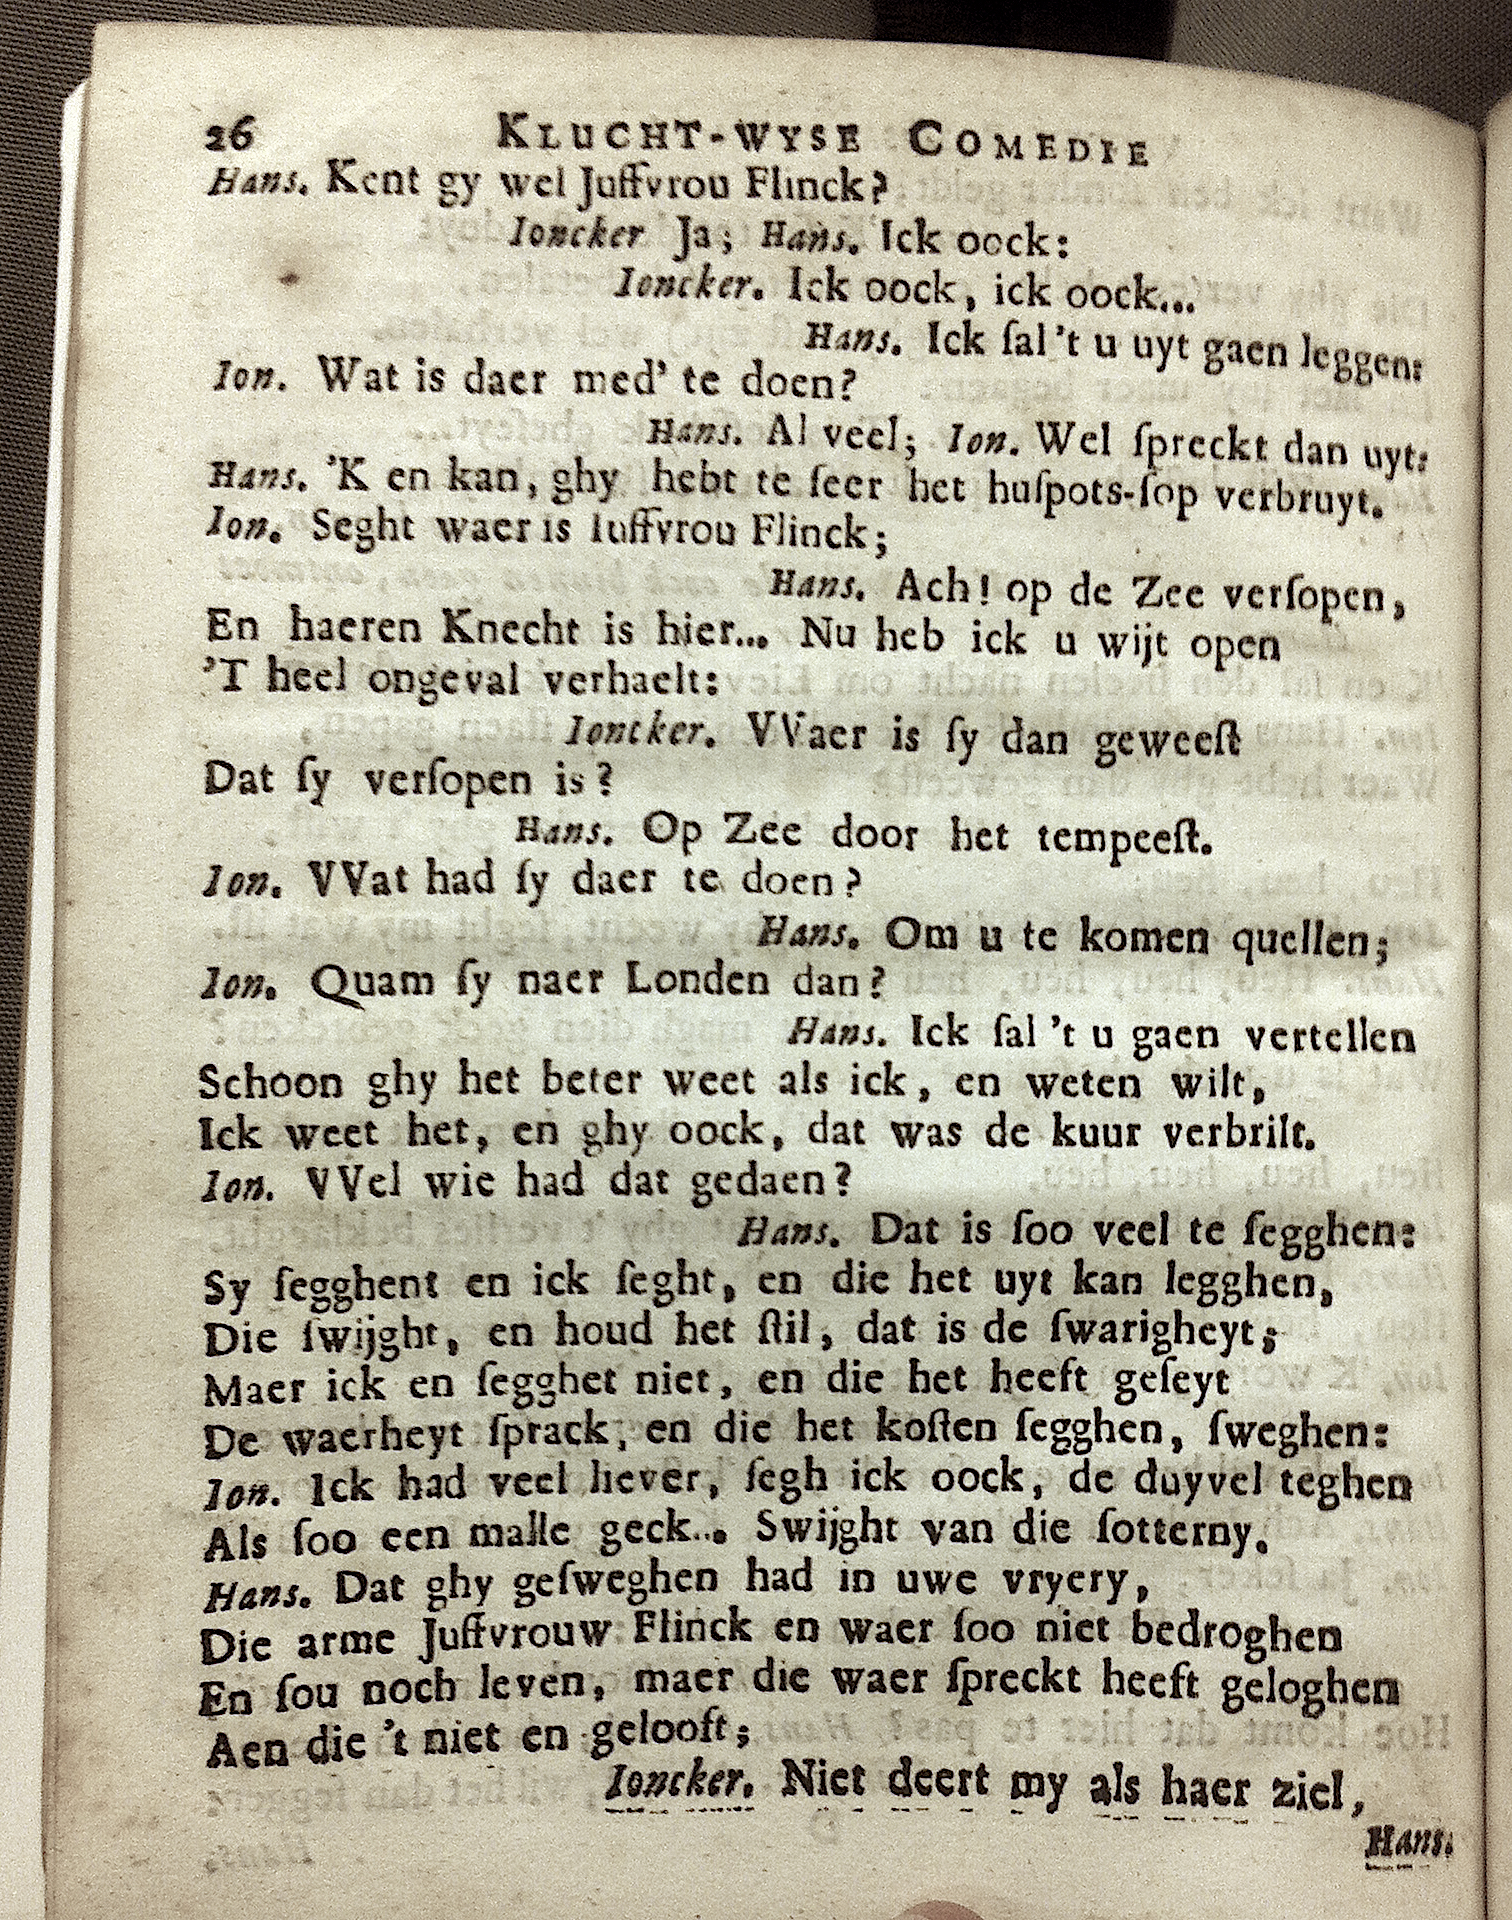 26 KLUCHT-WYSE COMEDIE
Hans. Kent gy wel Juffvrou Flinck?
Ioncker Ja; Hans. Ick oock:
Ioncker. Ick oock, ick oock...
Hans. Ick ſal 't u uyt gaen leggen:
Ion. Wat is daer med' te doen?
Hans. Al veel; Ion. Wel ſpreckt dan uyt:
Hans. 'K en kan, ghy hebt te ſeer het huſpots-ſop verbruyt.
Ion. Seght waer is Iuffvrou Flinck;
Hans. Ach! op de Zee verſopen,
En haeren Knecht is hier... Nu heb ick u wijt open
'T heel ongeval verhaelt:
Ioncker. VVaer is ſy dan geweeſt
Dat ſy verſopen is?
Hans. Op Zee door het tempeeſt.
Ion. VVat had ſy daer te doen?
Hans. Om u te komen quellen;
Ion. Quam ſy naer Londen dan?
Hans. Ick ſal 't u gaen vertellen
Schoon ghy het beter weet als ick, en weten wilt,
Ick weet het, en ghy oock, dat was de kuur verbrilt.
Ion. VVel wie had dat gedaen?
Hans. Dat is ſoo veel te ſegghen:
Sy ſegghent en ick ſeght, en die het uyt kan legghen,
Die ſwijght, en houd het ſtil, dat is de ſwarigheyt;
Maer ick en ſegghet niet, en die het heeft geſeyt
De waerheyt ſprack, en die het koſten ſegghen, ſweghen:
Ion. Ick had veel liever, ſegh ick oock, de duyvel teghen
Als ſoo een malle geck... Swijght van die ſotterny.
Hans. Dat ghy geſweghen had in uwe vryery,
Die arme Juffvrouw Flinck en waer ſoo niet bedroghen
En ſou noch leven, maer die waer ſpreckt heeft geloghen
Aen die 't niet en gelooft;
Ioncker. Niet deert my als haer ziel,
Hans.